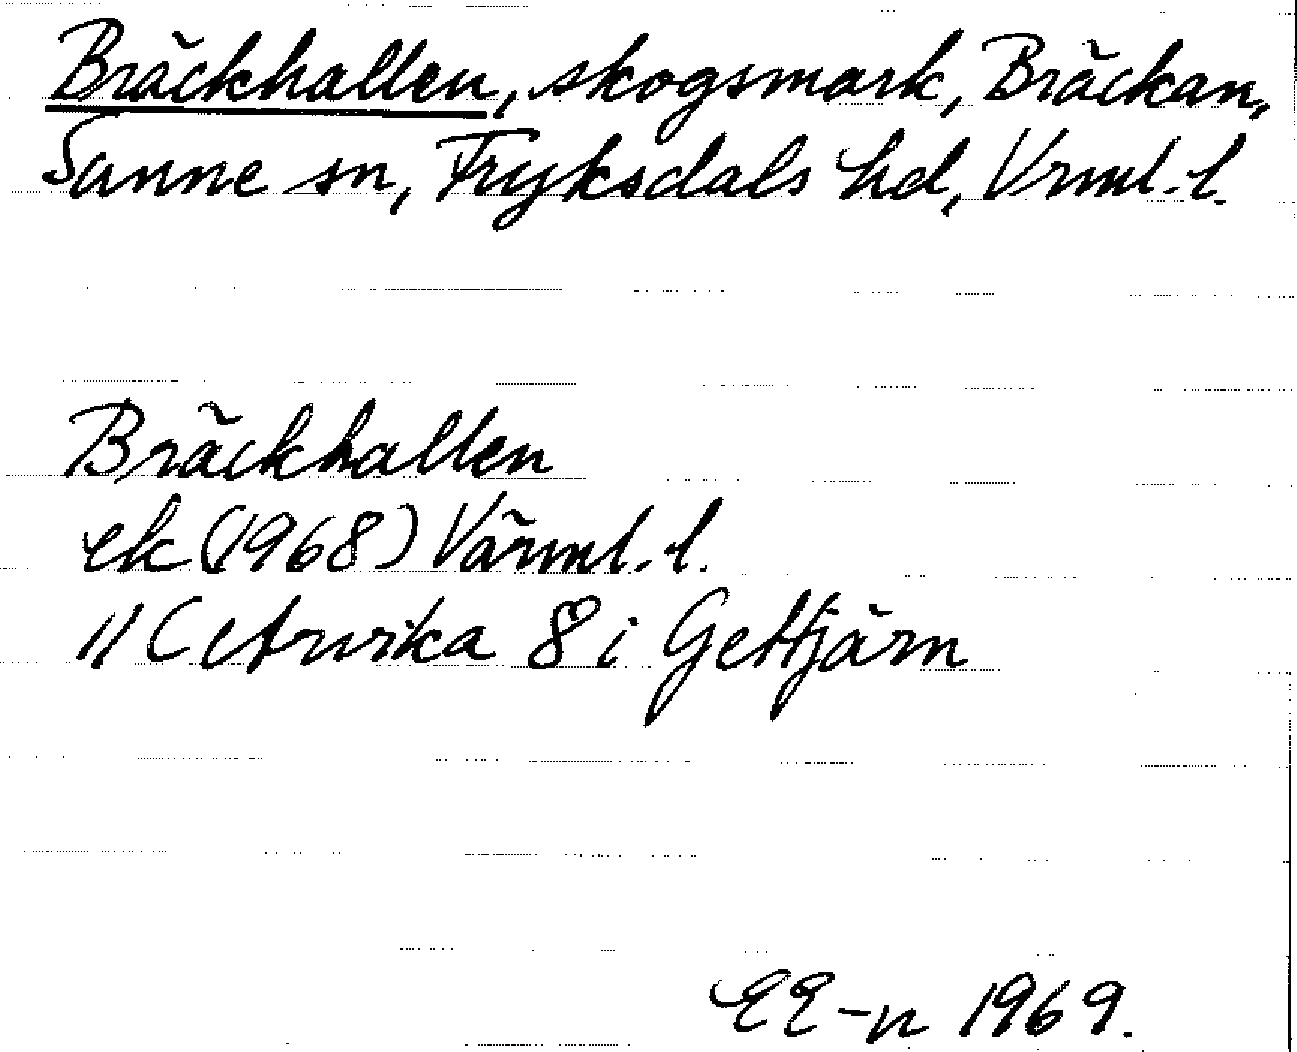 Bräckhallen, skogsmark, Bräckan,
Sunne sn, Fryksdals hd, Vrml. l.
Bräckhallen
ek (1968) Värml. l.
11 C Arvika 8 i Gettjärn
EE-n 1969.